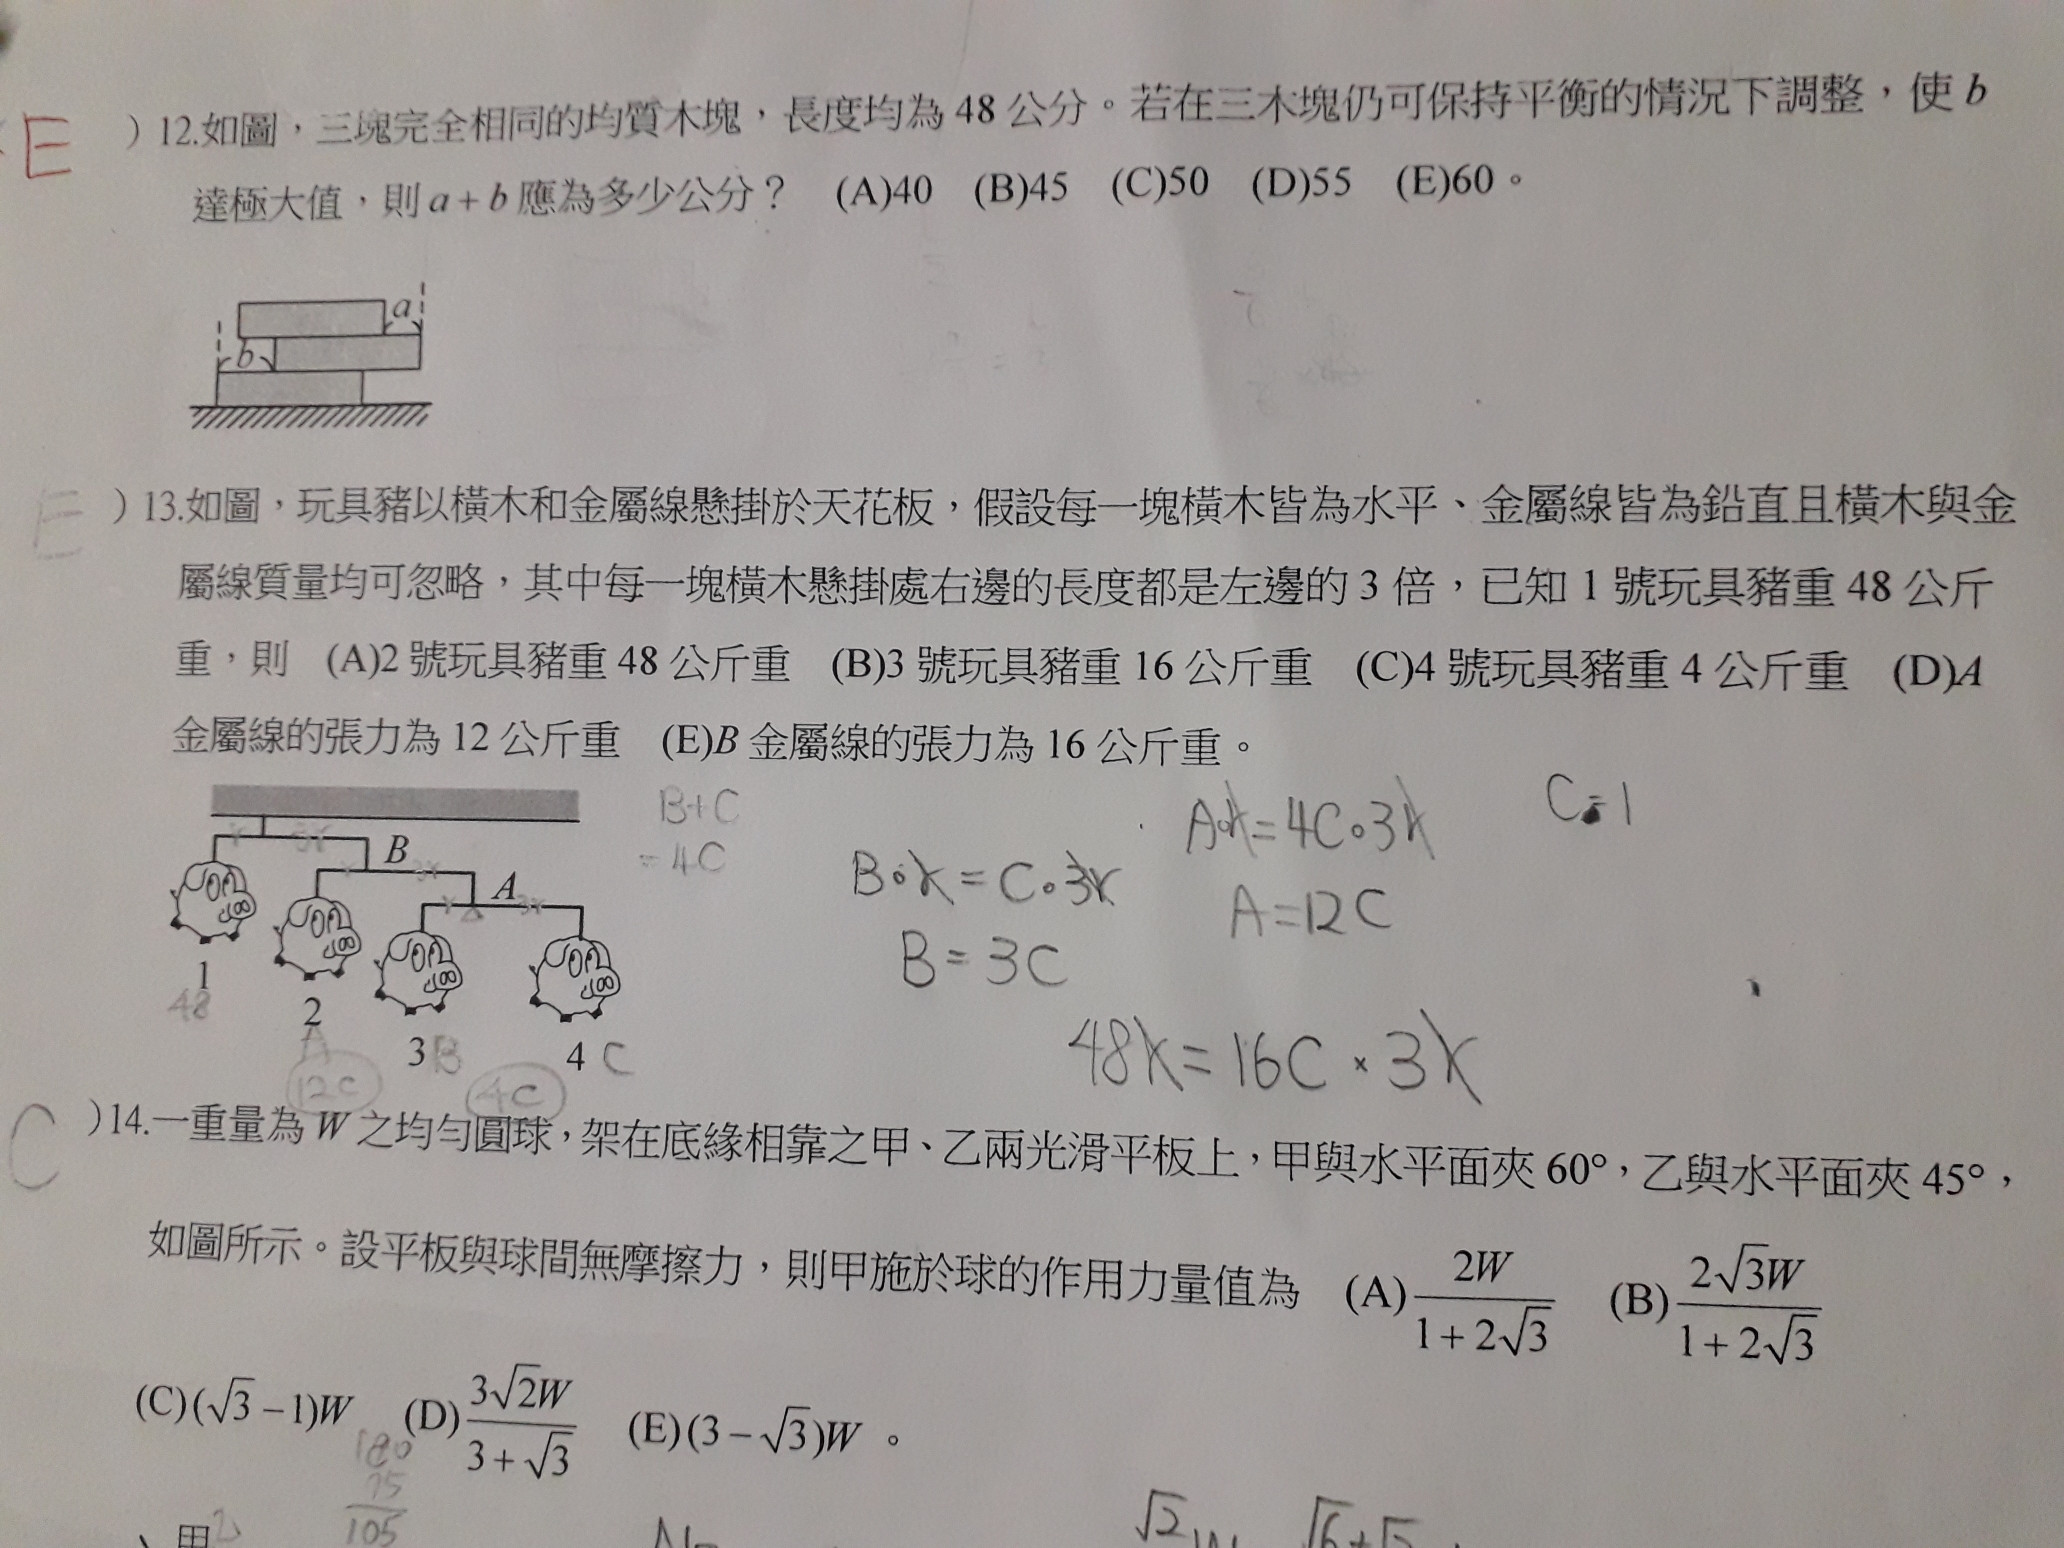 E )12.如圖，三塊完全相同的均質木塊，長度均為 48 公分。若在三木塊仍可保持平衡的情況下調整，使 b
達極大值，則 a + b 應為多少公分？ (A)40 (B)45 (C)50 (D)55 (E)60。
a
b
E )13.如圖，玩具豬以橫木和金屬線懸掛於天花板，假設每一塊橫木皆為水平、金屬線皆為鉛直且橫木與金
屬線質量均可忽略，其中每一塊橫木懸掛處右邊的長度都是左邊的 3 倍，已知 1 號玩具豬重 48 公斤
重，則 (A)2 號玩具豬重 48 公斤重 (B)3 號玩具豬重 16 公斤重 (C)4 號玩具豬重 4 公斤重 (D)A
金屬線的張力為 12 公斤重 (E)B 金屬線的張力為 16 公斤重。
B+C
=4C
B•x=C•3x
B=3C
A•x=4C•3x
A=12C
C=1
48x=16C×3x
x 3x B
x 3x
A
x 3x
1
48
2
A
12C
3 B
4C
4 C
C )14.一重量為 W 之均勻圓球，架在底緣相靠之甲、乙兩光滑平板上，甲與水平面夾 60°，乙與水平面夾 45°，
如圖所示。設平板與球間無摩擦力，則甲施於球的作用力量值為 (A) 2W/(1+2√3) (B) 2√3W/(1+2√3)
(C)(√3−1)W (D) 3√2W/(3+√3) (E)(3−√3)W 。
180
75
105
甲
√2